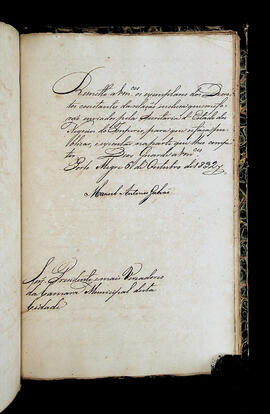 Remetto a Vm.ces os exemplares dos Decre
tos constantes da relação inclusa que me fo
rão enviados pela Secretaria d'Estado dos
Negocios do Imperio, para que os faça pu
blicar, e executar na parte que lhes compe
tir. Deos Guarde a Vm.ces
Porto Alegre 6 de Outubro de 1832
Manoel Antonio Galvão
Snr.s Presidente, e mais Vereadores
da Camara Municipal desta
Cidade